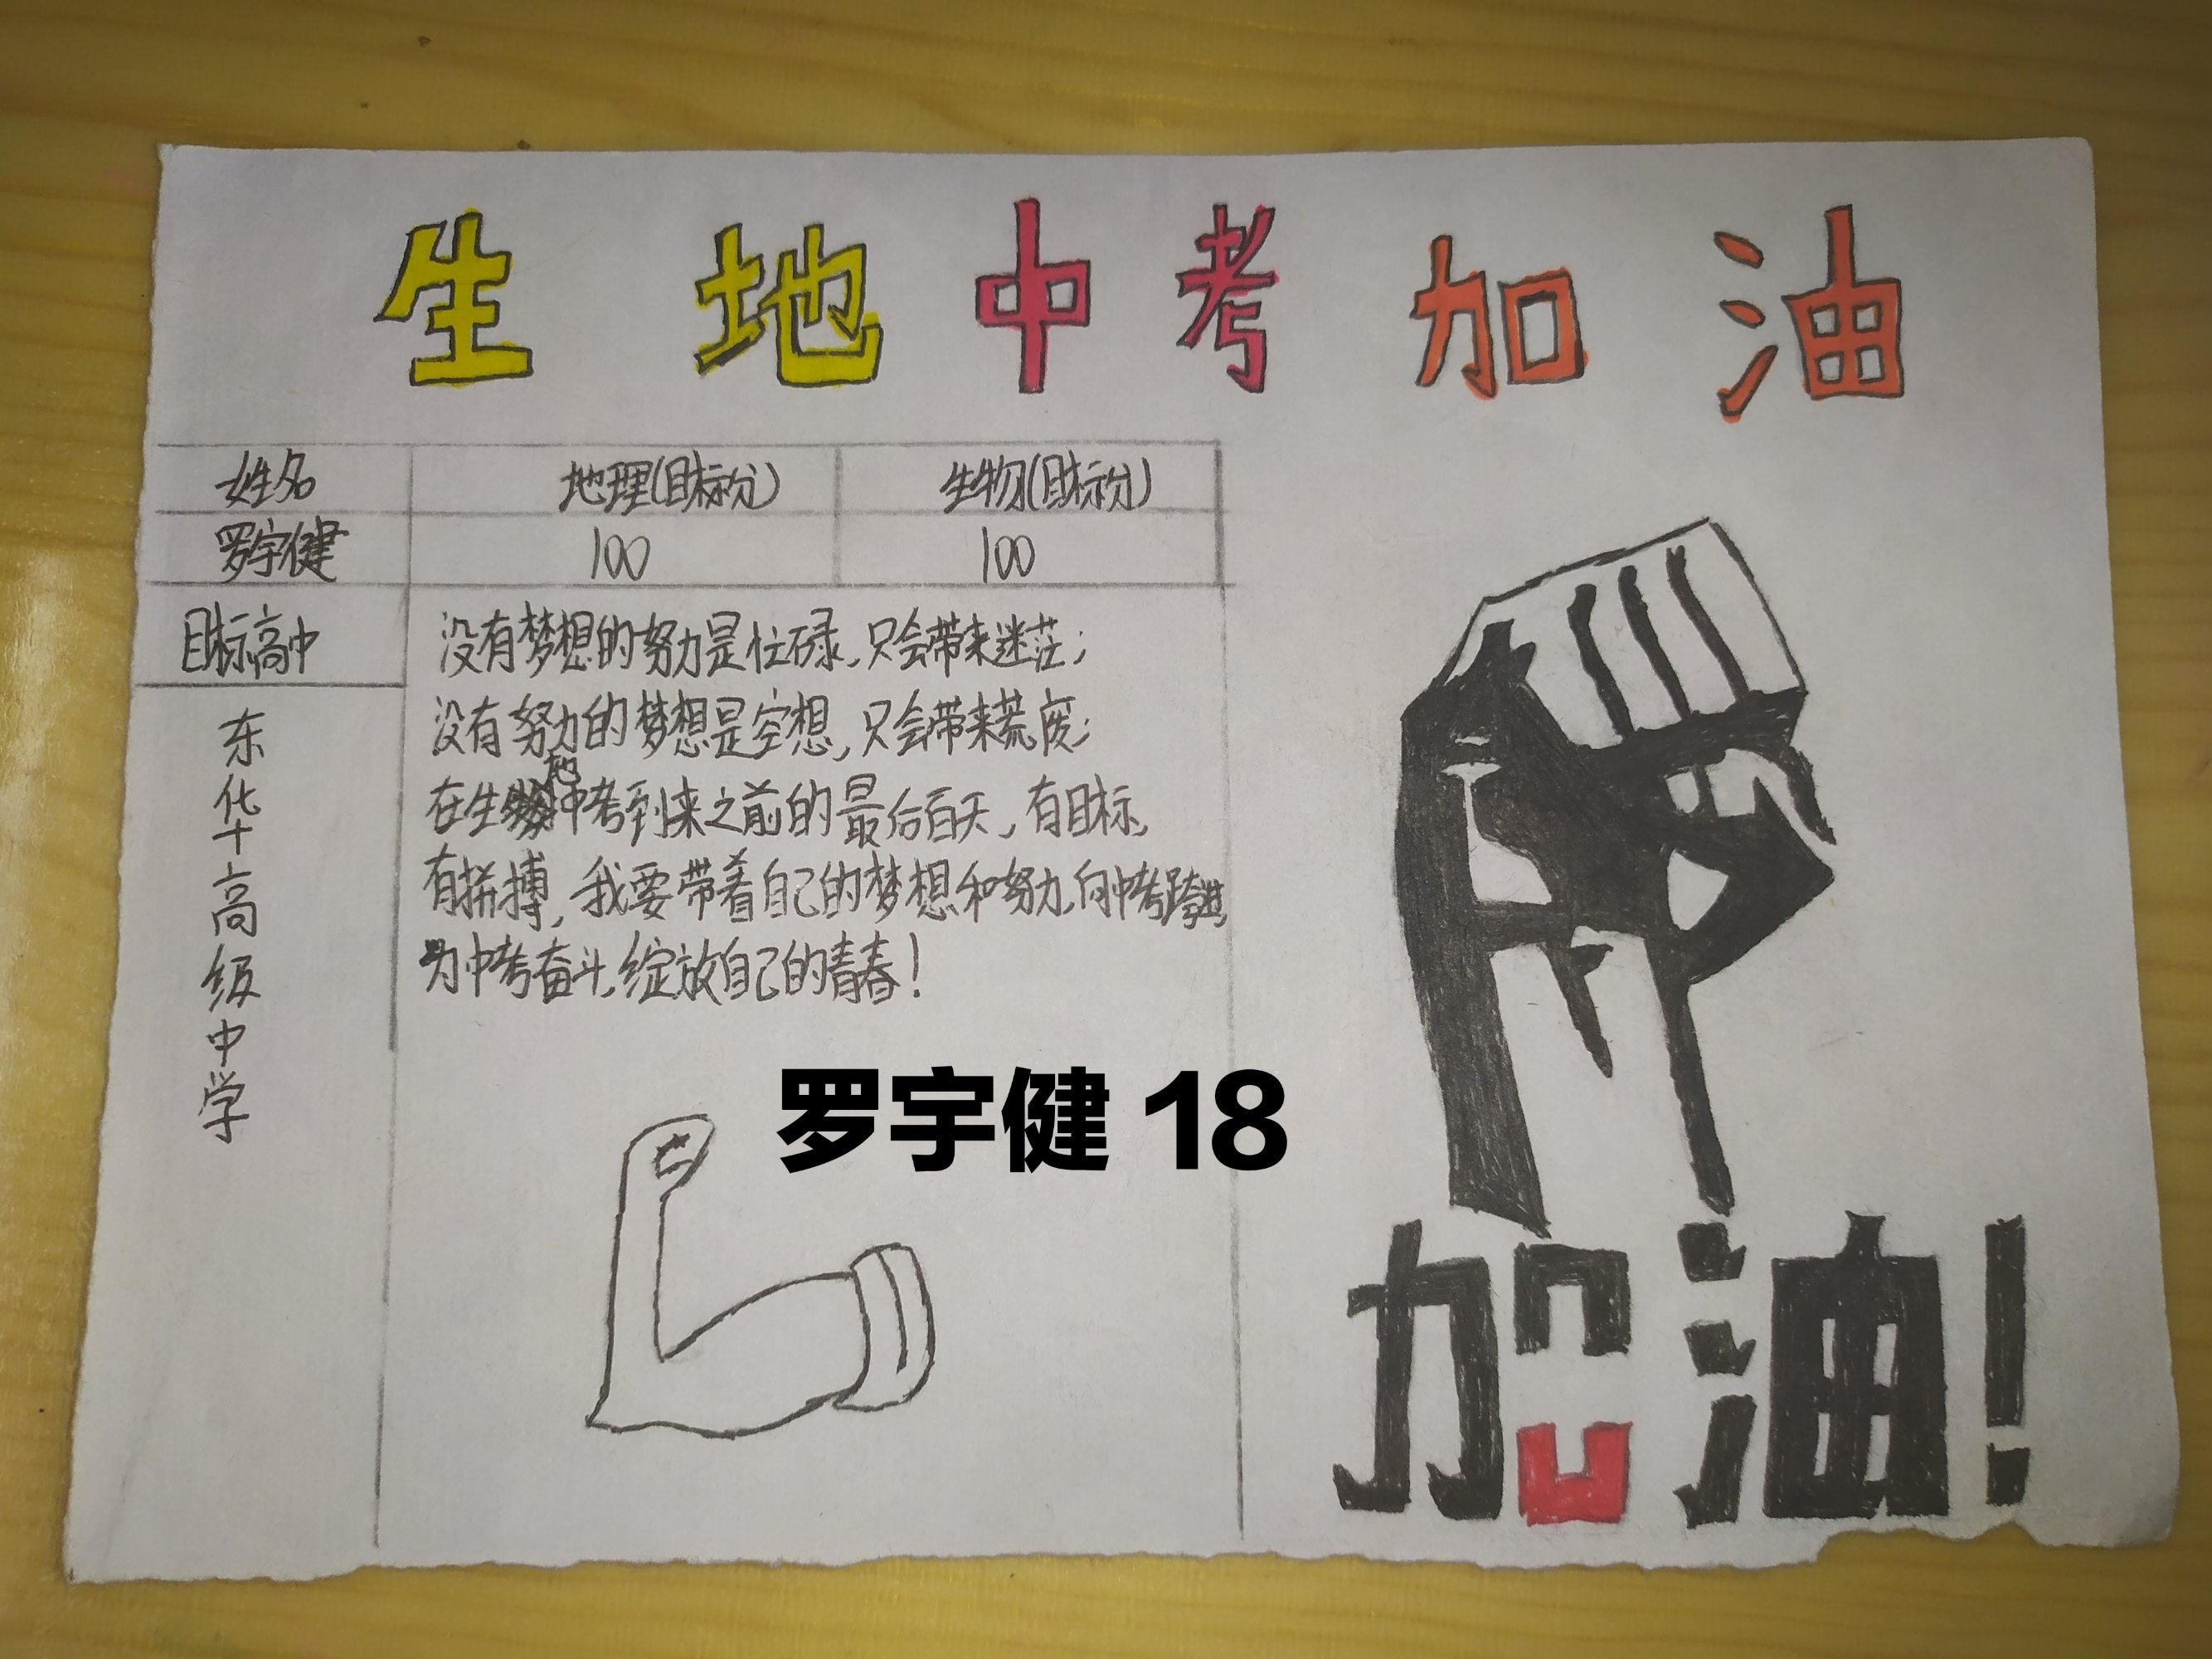 生地中考加油
姓名 地理(目标分) 生物(目标分)
罗宇健 100 100
目标高中
东华高级中学
没有梦想的努力是忙碌,只会带来迷茫;
没有努力的梦想是空想,只会带来荒废;
在生地中考到来之前的最后百天,有目标,
有拼搏,我要带着自己的梦想和努力,向中考跨进,
为中考奋斗,绽放自己的青春!
罗宇健 18
加油!